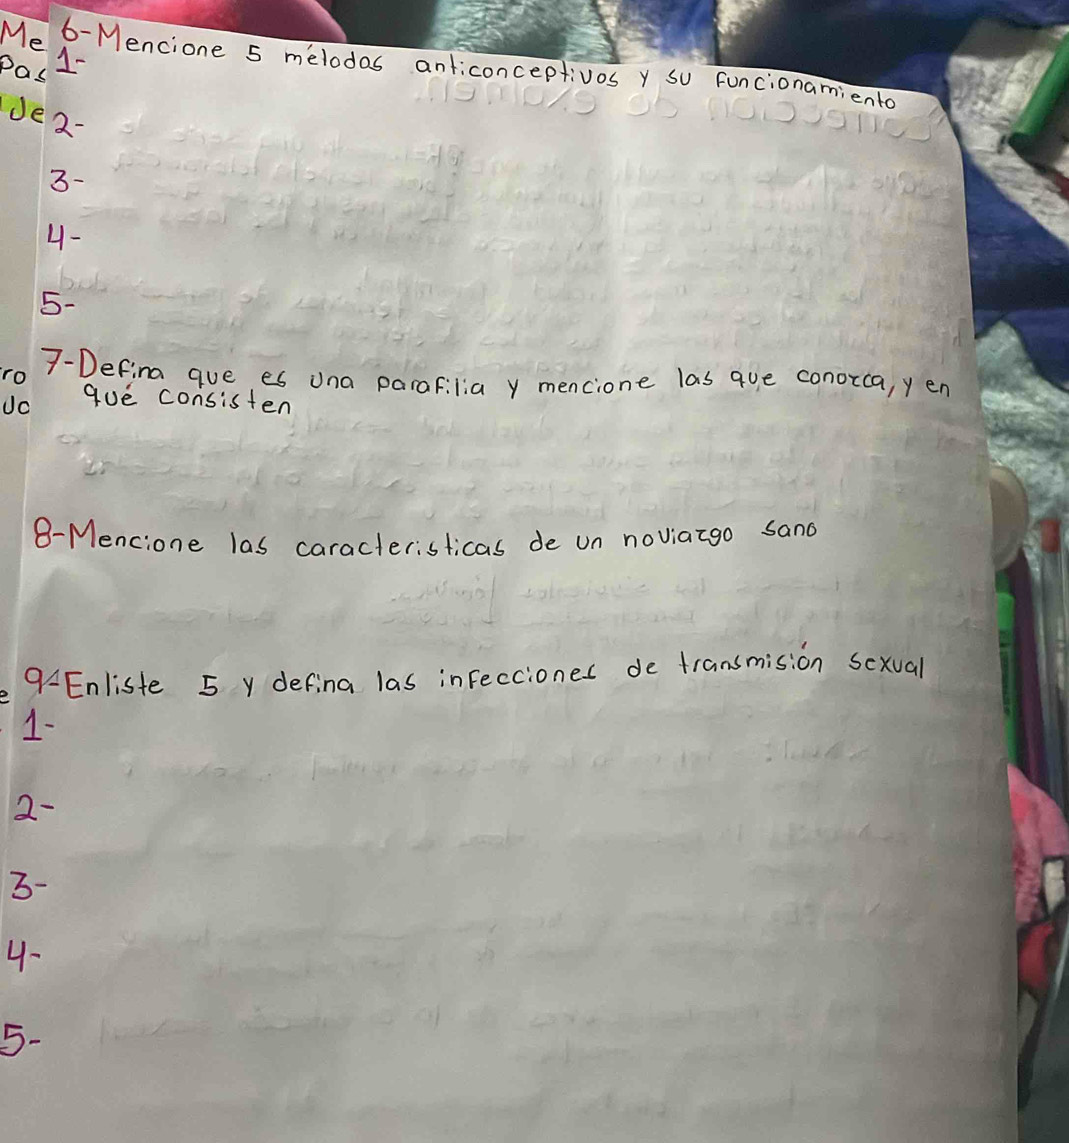 Me
Pas
de
6-Mencione 5 mélodos anticonceptivos y su funcionamiento
1-
2-
3-
4-
5-
ro
7-Defina que es una parafilia y mencione las que conozca, y en
qué consisten
8-Mencione las caracteristicas de un noviazgo sano
9-Enliste 5 y defina las infecciones de transmisión sexual
1-
2-
3-
4-
5-